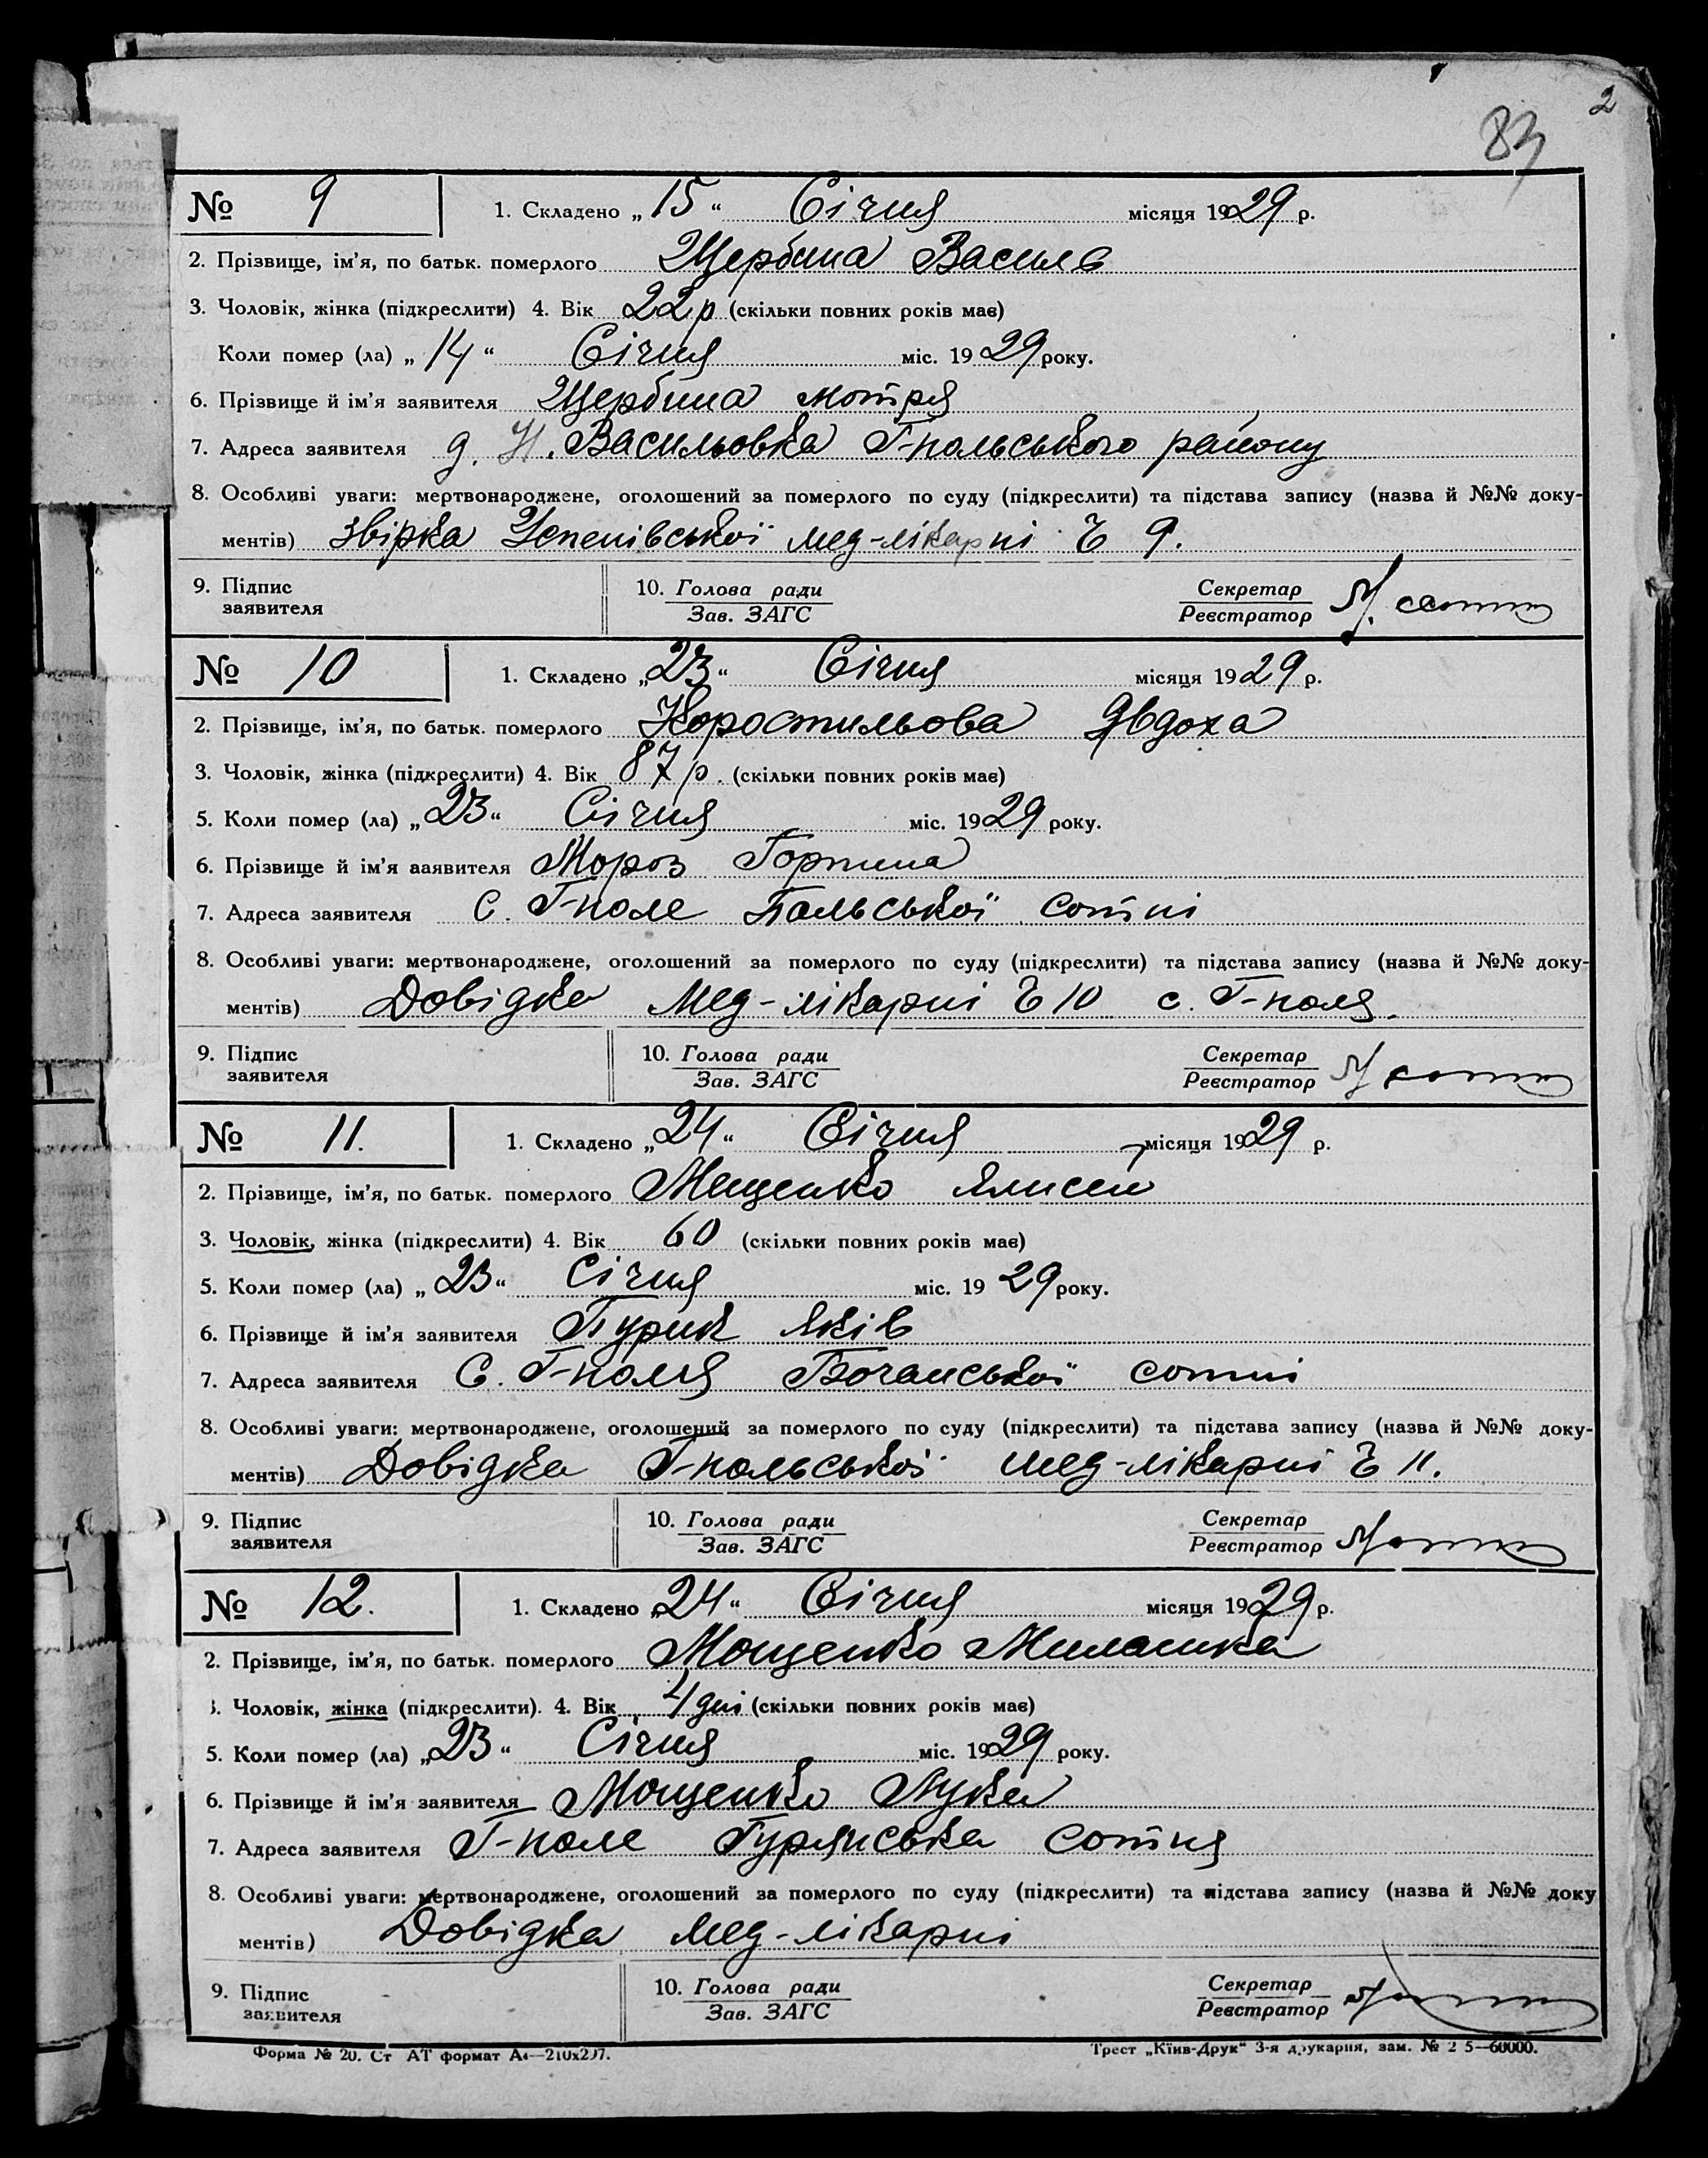 2
83
№ 9 1. Складено „15“ Січня місяця 1929 р.
2. Прізвище, ім'я, по батьк. померлого Щербина Василь
3. Чоловік, жінка (підкреслити) 4. Вік 22 р (скільки повних років має)
Коли помер (ла) „14“ Січня міс. 1929 року.
6. Прізвище й ім'я заявителя Щербина мотря
7. Адреса заявителя д. Н. Васильовка Г-польського району
8. Особливі уваги: мертвонароджене, оголошений за померлого по суду (підкреслити) та підстава запису (назва й №№ доку-
ментів) Звірка Успенівської мед-лікарні Ч 9.
9. Підпис 10. Голова ради Секретар
заявителя Зав. ЗАГС Реєстратор
№ 10 1. Складено „23“ Січня місяця 1929 р.
2. Прізвище, ім'я, по батьк. померлого Коростильова Явдоха
3. Чоловік, жінка (підкреслити) 4. Вік 87 р. (скільки повних років має)
5. Коли помер (ла) „23“ Січня міс. 1929 року.
6. Прізвище й ім'я ааявителя Мороз Горпина
7. Адреса заявителя С. Г-поле Польської сотні
8. Особливі уваги: мертвонароджене, оголошений за померлого по суду (підкреслити) та підстава запису (назва й №№ доку-
ментів) Довідка Мед-лікарні Ч 10 с. Г-поля.
9. Підпис 10. Голова ради Секретар
заявителя Зав. ЗАГС Реєстратор
№ 11. 1. Складено „24“ Січня місяця 1929 р.
2. Прізвище, ім'я, по батьк. померлого Мещенко Ялисей
3. Чоловік, жінка (підкреслити) 4. Вік 60 (скільки повних років має)
5. Коли помер (ла) „23“ Січня міс. 1929 року.
6. Прізвище й ім'я заявителя Яків
7. Адреса заявителя С. Г-поля Бочанської сотні
8. Особливі уваги: мертвонароджене, оголошений за померлого по суду (підкреслити) та підстава запису (назва й №№ доку-
ментів) Довідка Г-польської мед-лікарні Ч 11.
9. Підпис 10. Голова ради Секретар
заявителя Зав. ЗАГС Реєстратор
№ 12. 1. Складено „24“ Січня місяця 1929 р.
2. Прізвище, ім'я, по батьк. померлого Мощенко Милашка
3. Чоловік, жінка (підкреслити). 4. Вік 4 дні (скільки повних років має)
5. Коли помер (ла) „23“ Січня міс. 1929 року.
6. Прізвище й ім'я заявителя Мощенко Лука
7. Адреса заявителя Г-поле Гурянська сотня
8. Особливі уваги: мертвонароджене, оголошений за померлого по суду (підкреслити) та підстава запису (назва й №№ доку
ментів) Довідка мед-лікарні
9. Підпис 10. Голова ради Секретар
заявителя Зав. ЗАГС Реєстратор
Форма № 20. Ст АТ формат А4—210х297. Трест „Київ-Друк“ 3-я друкарня, зам. № 2 5—60000.